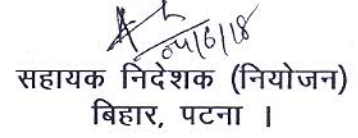 04/6/18
सहायक निदेशक (नियोजन)
बिहार, पटना ।